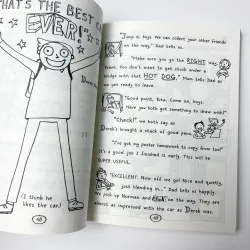 THAT'S THE BEST
EVER!
(I think he
likes the car.)
48
"Jump in, boys. We can collect your other friends
on the way." Dad tells us.
"Make sure you go the RIGHT way
Frank. You don't want to get stuck under a
bridge with that HOT DOG," Mum tells Dad as
we get ready to leave.
"Good point, Rita. Come on, boys.
Have you both got something to draw with?"
"Check!" we both say as
Derek's brought a stack of good paper
"I've got my poster homework to copy from too!
It's a good job I finished it early. This will be
SUPER USEFUL.
"EXCELLENT. Now off we go! Nice and quietly,
just blending in..." Dad tells us happily.
We pick up Norman and on the way. They are
almost as impressed with the car as Derek was.
49